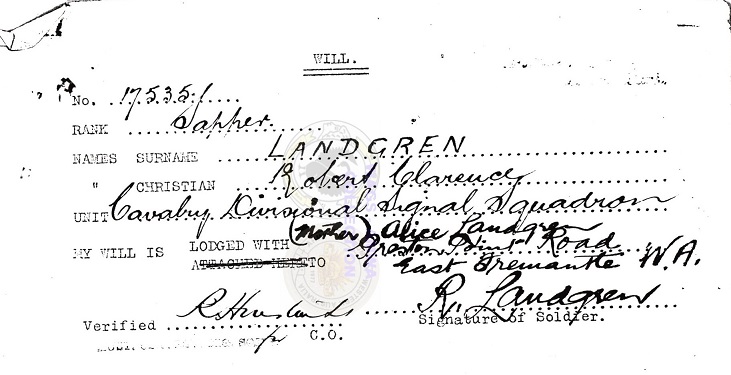 WILL.
No. 17535
RANK Sapper.
NAMES SURNAME LANDGREN
" CHRISTIAN Robert Clarency
UNIT Cavalry Divisional Signal Squadron
(Mother) Alice Landgren
MY WILL IS LODGED WITH Preston Point Road
ATTACHED HERETO East Fremantle W.A.
R. Landgren
Verified Signature of Soldier.
C.O.